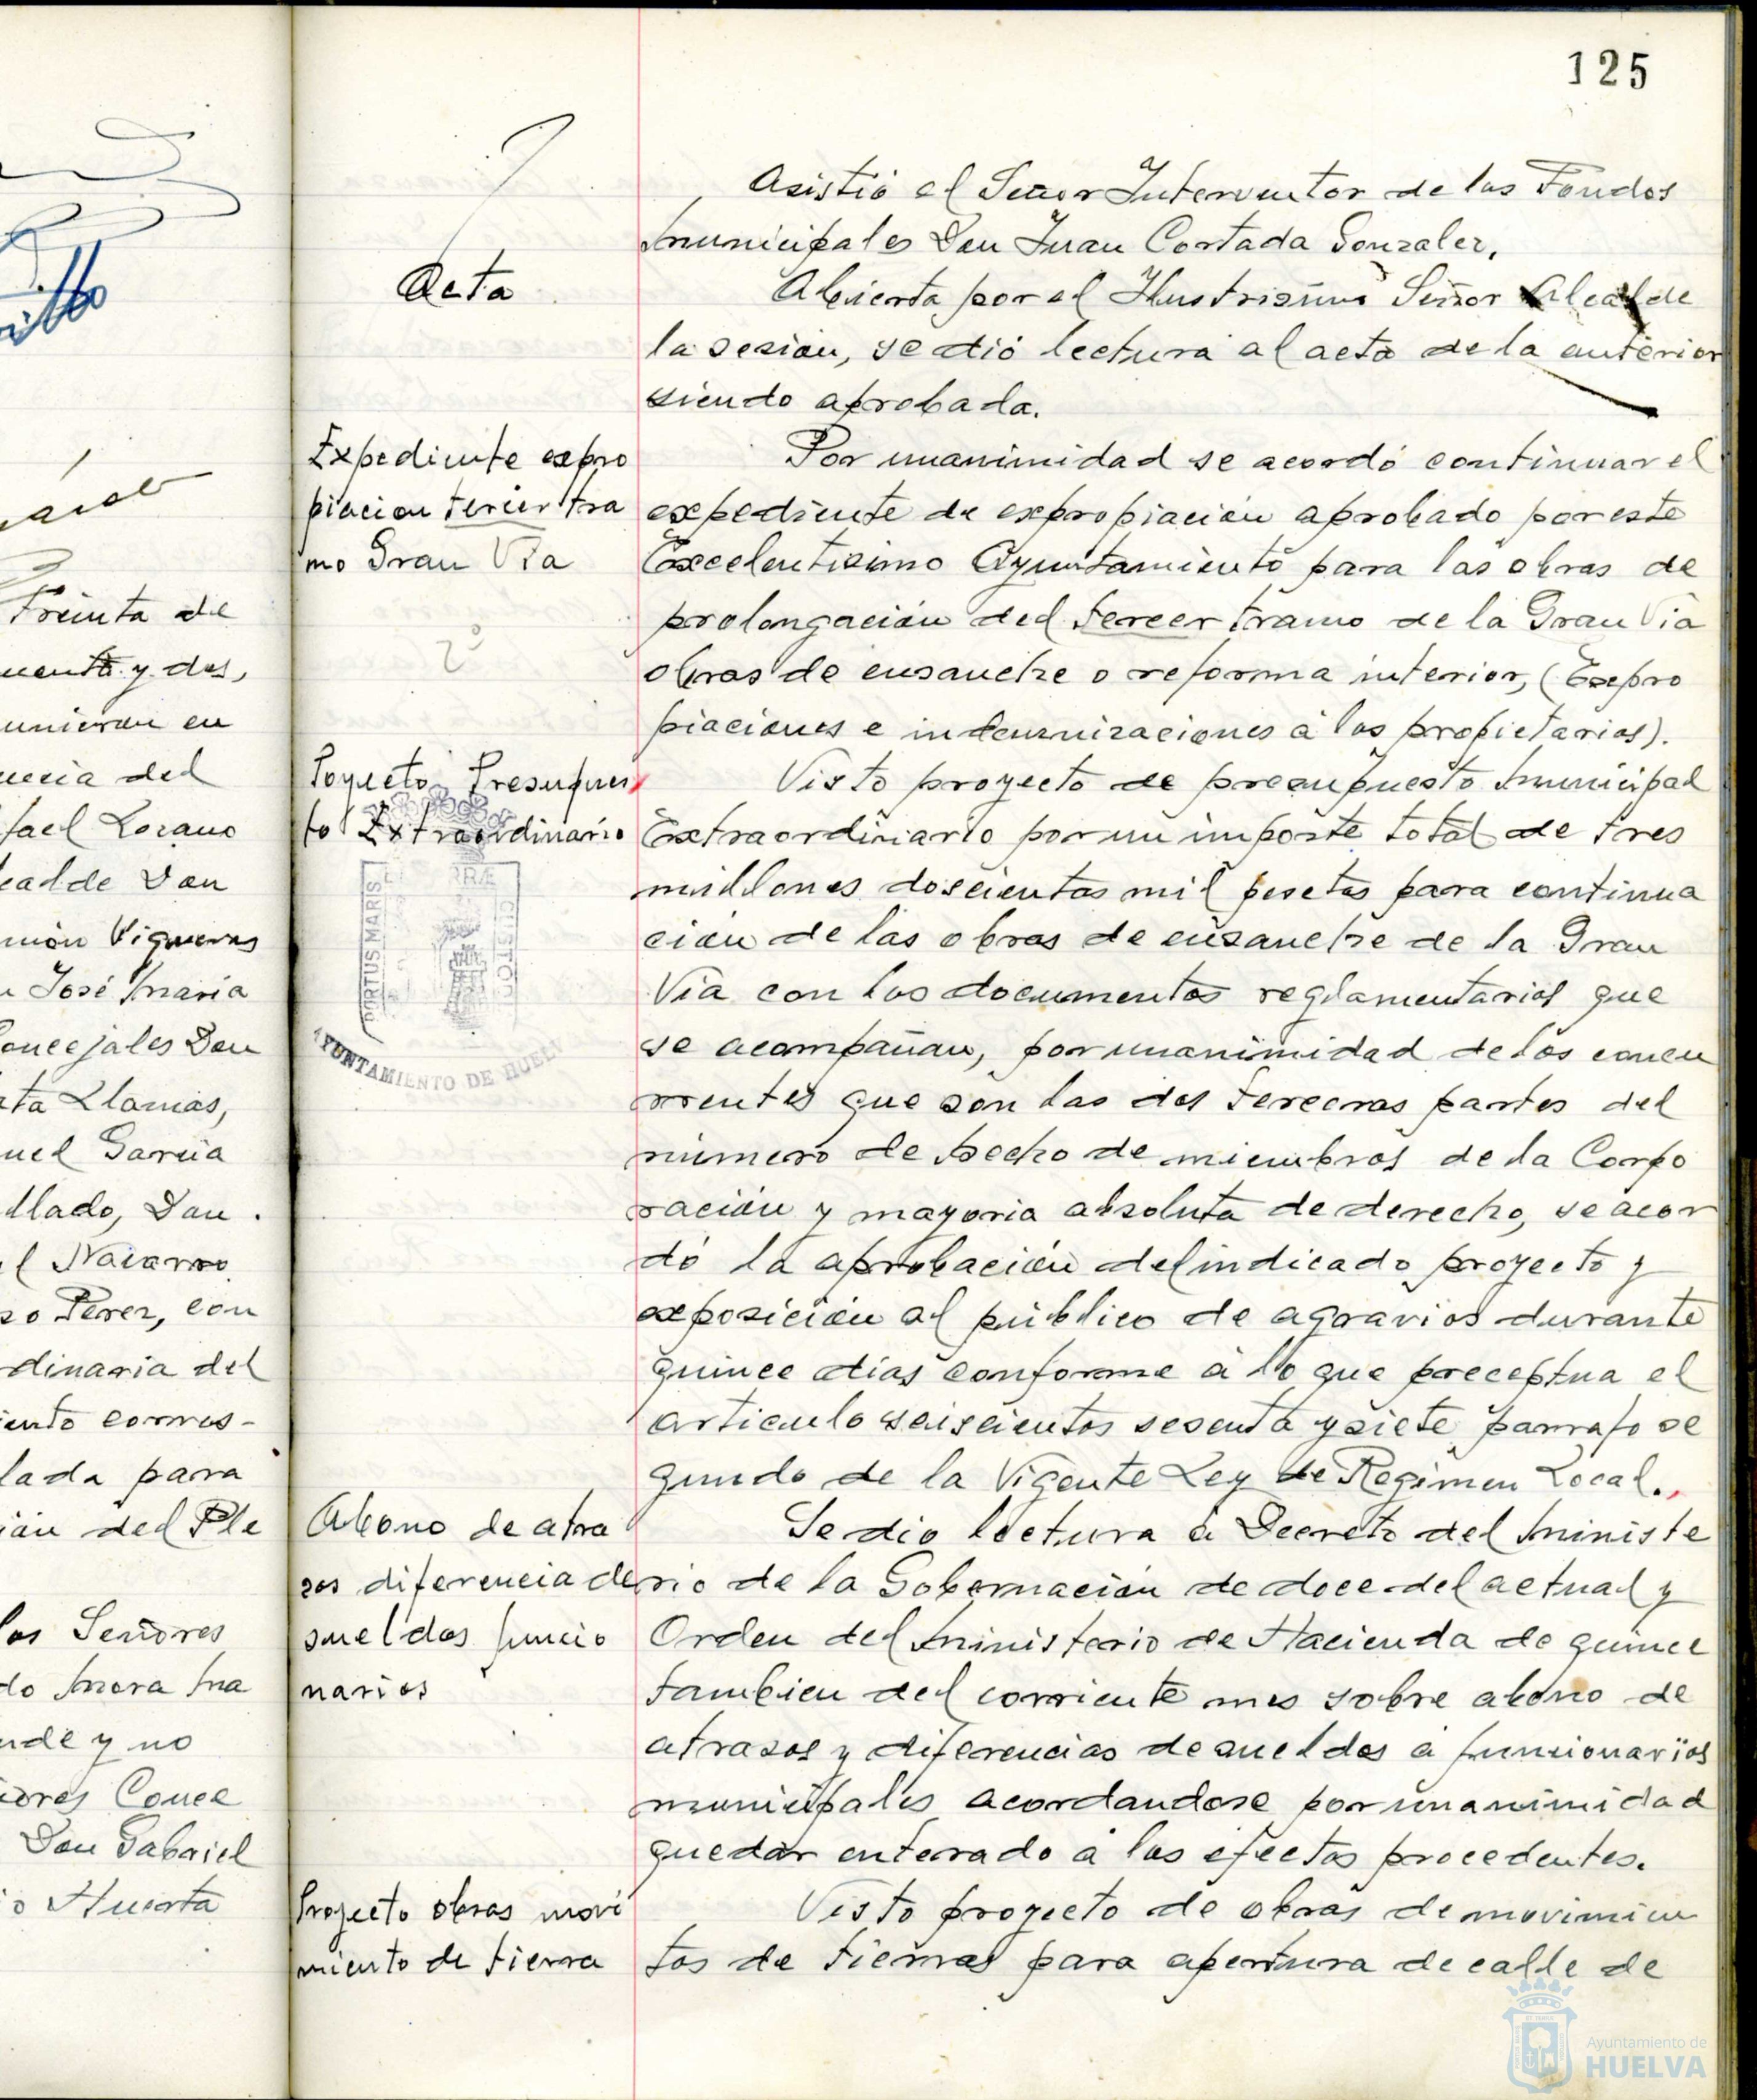 125
Asistió el Señor Interventor de los Fondos
municipales Don Juan Cortada Gonzalez.
Acta
Abierta por el Ilustrisimo Señor Alcalde
la sesión, se dió lectura al acta de la anterior
siendo aprobada.
Expediente expro
piacion tercer tra
mo Gran Via
2º
Por unanimidad se acordó continuar el
expediente de expropiación aprobado por este
Excelentisimo Ayuntamiento para las obras de
prolongación del tercer tramo de la Gran Via
obras de ensanche o reforma interior, (Expro
piaciones e indemnizaciones á los propietarios).
Poyecto Presupues
to Extraordinario
Visto proyecto de presupuesto municipal
Extraordinario por un importe total de tres
millones doscientas mil pesetas para continua
ción de las obras de ensanche de la Gran
Via con los documentos reglamentarios que
se acompañan, por unanimidad de los concu
rrentes que son las dos terceras partes del
número de hecho de miembros de la Corpo
ración y mayoria absoluta de derecho, se acor
dó la aprobación del indicado proyecto y
exposición al público de agravios durante
quince dias conforme á lo que preceptua el
articulo seiscientos sesenta y siete parrafo se
gundo de la Vigente Ley de Regimen Local.
PORTUS MARIS
AYUNTAMIENTO DE HUELV
Abono de atra
sos diferencia de
sueldos funcio
narios
Se dio lectura á Decreto del Ministe
rio de la Gobernación de doce del actual y
Orden del Ministerio de Hacienda de quince
tambien del corriente mes sobre abono de
atrasos y diferencias de sueldos á funcionarios
municipales acordandose por unanimidad
quedar enterado á los efectos procedentes.
Proyecto obras movi
miento de tierra
Visto proyecto de obras de movimien
tos de tierras para apertura de calle de
Treinta de
uenta y dos,
unieron en
encia del
fael Lozano
calde Don
món Vigueras
n José Maria
Concejales Don
rta Llamas,
uel Garcia
llado, Don
el Navarro
so Perez, con
dinaria del
iento corres-
lada para
ión del Ple
los Señores
do Mora Ma
nde y no
iores Conce
Don Gabriel
io Huerta
Ayuntamiento de
HUELVA